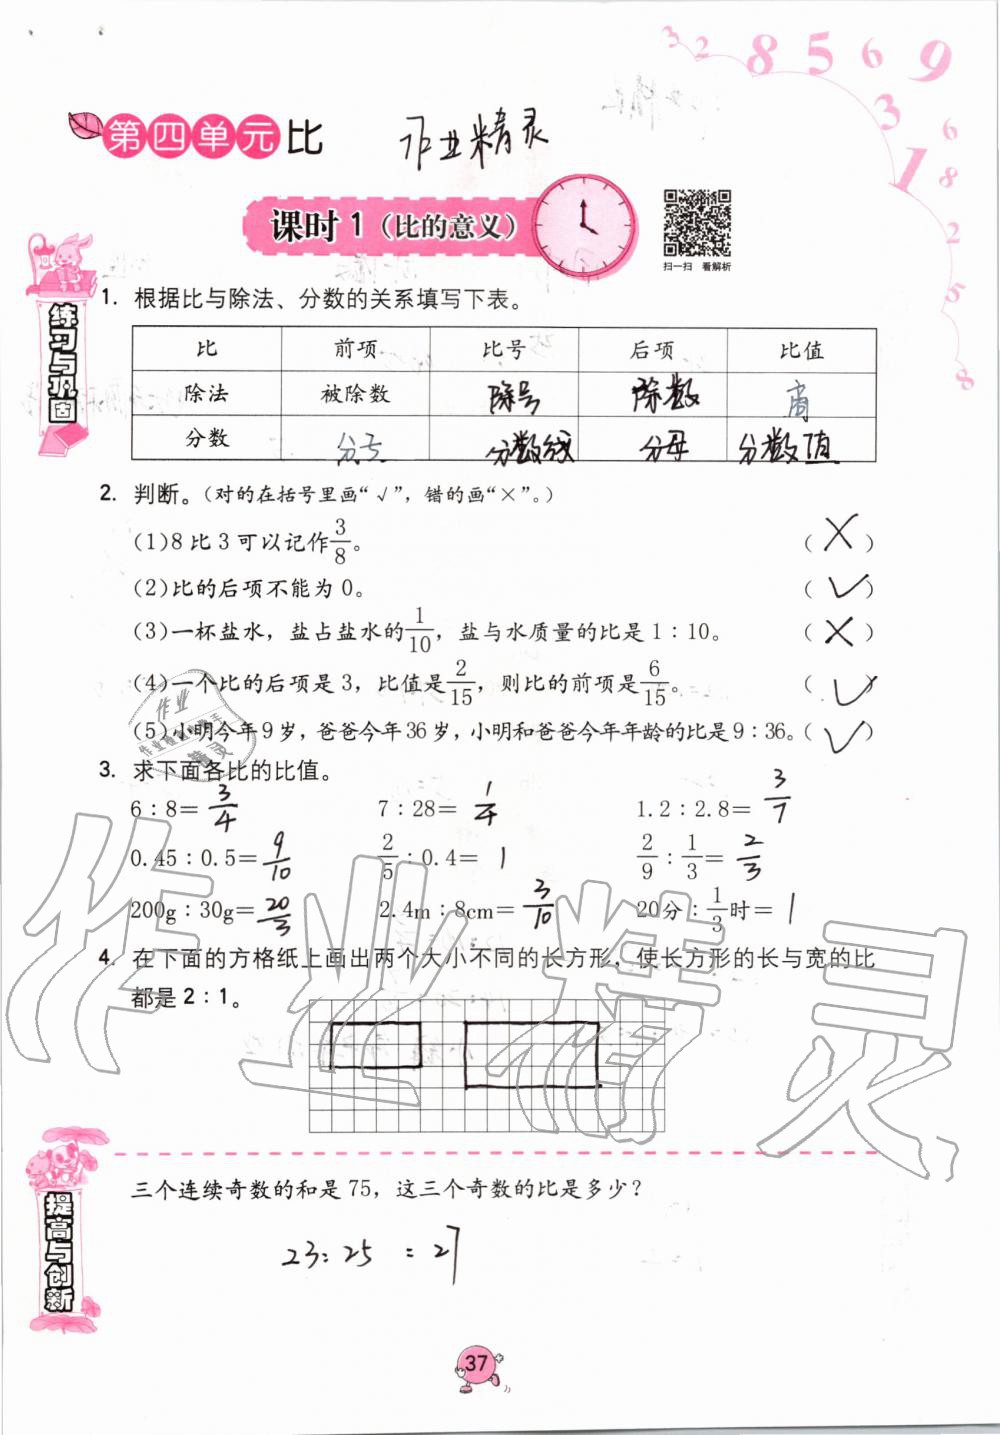 3 2 8 5 6 9
3 1 6 8 2 5 8
第四单元 比
作业精灵
课时1（比的意义）
扫一扫 看解析
练习与巩固
1. 根据比与除法、分数的关系填写下表。
比 前项 比号 后项 比值
除法 被除数 除号 除数 商
分数 分子 分数线 分母 分数值
2. 判断。（对的在括号里画“√”，错的画“×”。）
(1)8比3可以记作3/8。 (×)
(2)比的后项不能为0。 (√)
(3)一杯盐水，盐占盐水的1/10，盐与水质量的比是1∶10。 (×)
(4)一个比的后项是3，比值是2/15，则比的前项是6/15。 (√)
(5)小明今年9岁，爸爸今年36岁，小明和爸爸今年年龄的比是9∶36。(√)
3. 求下面各比的比值。
6∶8＝3/4 7∶28＝1/4 1.2∶2.8＝3/7
0.45∶0.5＝9/10 2/5∶0.4＝1 2/9∶1/3＝2/3
200g∶30g＝20/3 2.4m∶8cm＝3/10 20分∶1/3时＝1
4. 在下面的方格纸上画出两个大小不同的长方形，使长方形的长与宽的比
都是2∶1。
作业精灵
提高与创新
三个连续奇数的和是75，这三个奇数的比是多少？
23:25:27
37